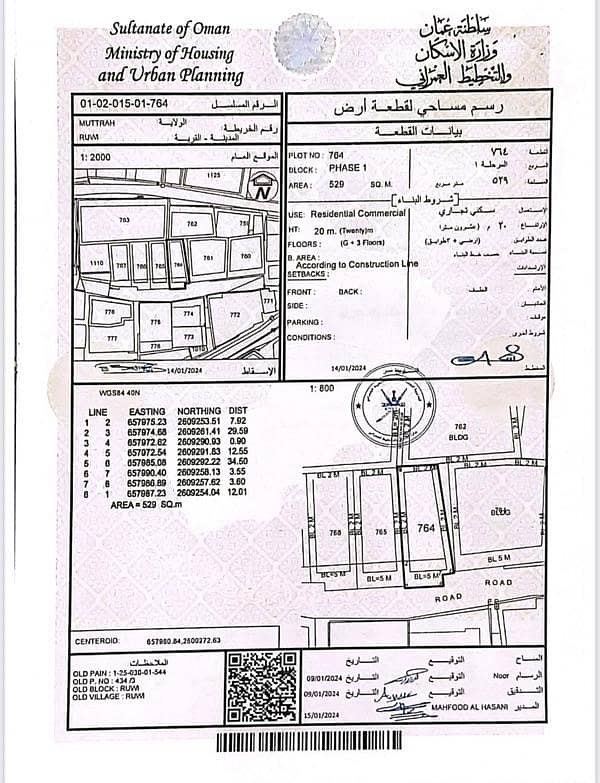 Sultanate of Oman
Ministry of Housing
and Urban Planning
سلطنة عمان
وزارة الإسكان
والتخطيط العمراني
01-02-015-01-764 الرقم المسلسل
MUTTRAH الولاية:
رقم الخريطة:
RUWI المدينة - القرية:
1: 2000 الموقع العام
رسم مساحي لقطعة أرض
بيانات القطعة
PLOT NO : 764 ٧٦٤ القطعة:
BLOCK : PHASE 1 المرحلة ١ المربع:
AREA : 529 SQ. M. متر مربع ٥٢٩ المساحة:
شروط البناء
USE: Residential Commercial سكني تجاري الإستعمال
HT: 20 m. (Twenty)m ٢٠ م (عشرون مترا) الإرتفاع
FLOORS : (G + 3 Floors) (أرضي + ٣ طوابق) عدد الطوابق
B. AREA : حسب خط البناء نسبة البناء
According to Construction Line
SETBACKS: الإرتدادات
FRONT : BACK : الخلف: الأمام:
SIDE :
PARKING : موقف:
CONDITIONS : شروط أخرى
14/01/2024 المخطط
1125
N
763
762
761
760
1110
767
766
765
764
776
775
774
773
772
771
777
778
1010
14/01/2024 الإسقاط
WGS84 40N
1: 800
LINE EASTING NORTHING DIST
1 2 657975.23 2609253.51 7.92
2 3 657974.68 2609261.41 29.59
3 4 657972.62 2609290.93 0.90
4 5 657972.54 2609291.83 12.55
5 6 657985.08 2609292.22 34.50
6 7 657990.40 2609258.13 3.55
7 8 657986.89 2609257.62 3.60
8 1 657987.23 2609254.04 12.01
AREA = 529 SQ.m
762
BLDG
BL 2 M
BL 2 M
BL 2 M
BL 2 M
766
765
764
BLDG
BL=5 M
BL=5 M
BL=5 M
BL 5 M
ROAD
ROAD
CENTEROID: 657980.84,2609272.63
الملاحظات
OLD PAIN : 1-25-030-01-544
OLD P. NO : 434 /3
OLD BLOCK : RUWI
OLD VILLAGE : RUWI
التاريخ التوقيع المساح
09/01/2024 التاريخ التوقيع Noor الرسام
09/01/2024 التاريخ التوقيع التدقيق
15/01/2024 MAHFOOD AL HASANI المدير